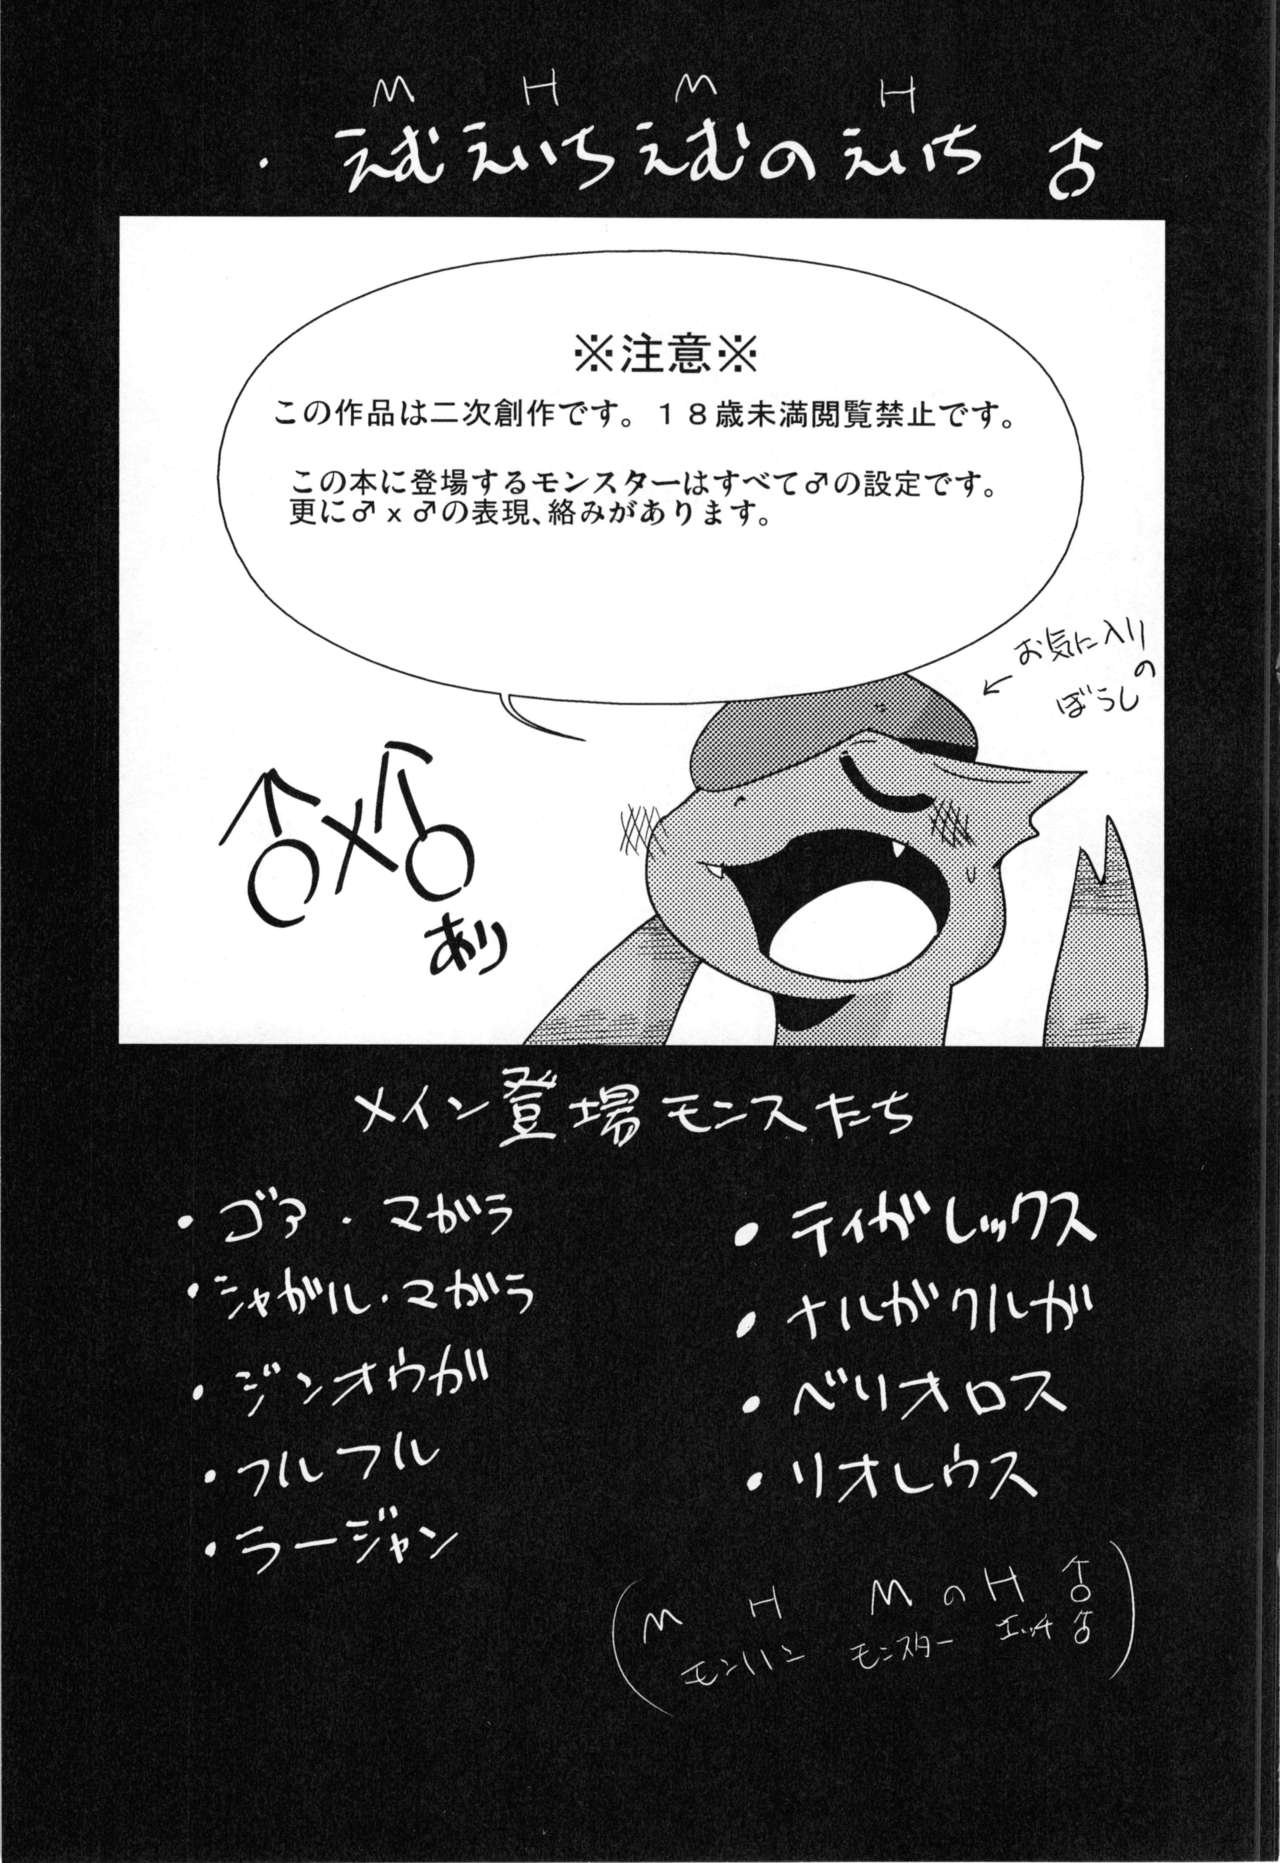 M H M H
・えむえいちえむのえいち♂
※注意※
この作品は二次創作です。１８歳未満閲覧禁止です。
この本に登場するモンスターはすべて♂の設定です。
更に♂ｘ♂の表現、絡みがあります。
←お気に入り
の
ぼうし
♂×♂
あり
メイン登場モンスたち
・ゴア・マガラ
・シャガル・マガラ
・ジンオウガ
・フルフル
・ラージャン
・ティガレックス
・ナルガクルガ
・ベリオロス
・リオレウス
(M H MのH♂
モンハン モンスター エッチ♂)